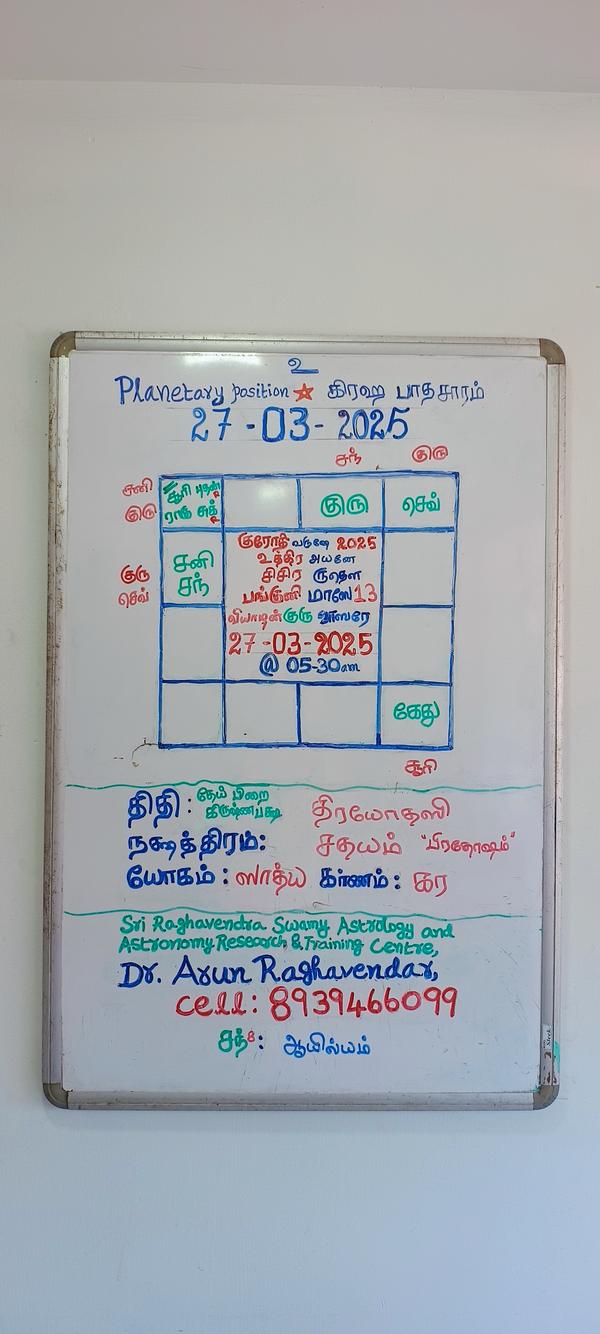 உ
Planetary position ★ கிரஹ பாதசாரம்
27-03-2025
சந் குரு
சனி சூரி புதன்
இரு ராகு சுக் குரு செவ்
குரு சனி
செவ் சந்
குரோதி வருஷே 2025
உத்திர அயனே
சிசிர ருதௌ
பங்குனி மாஸே 13
வியாழன் குரு வாஸரே
27-03-2025
@ 05-30am
கேது
சூரி
திதி: தேய் பிறை கிருஷ்ணபக்ஷ திரயோதஸி
நக்ஷத்திரம்: சதயம் "பிரதோஷம்"
யோகம்: ஸாத்ய கர்ணம்: கர
Sri Raghavendra Swamy Astrology and
Astronomy Research & Training Centre,
Dr. Arun Raghavendar,
cell: 8939466099
சந்8: ஆயில்யம்